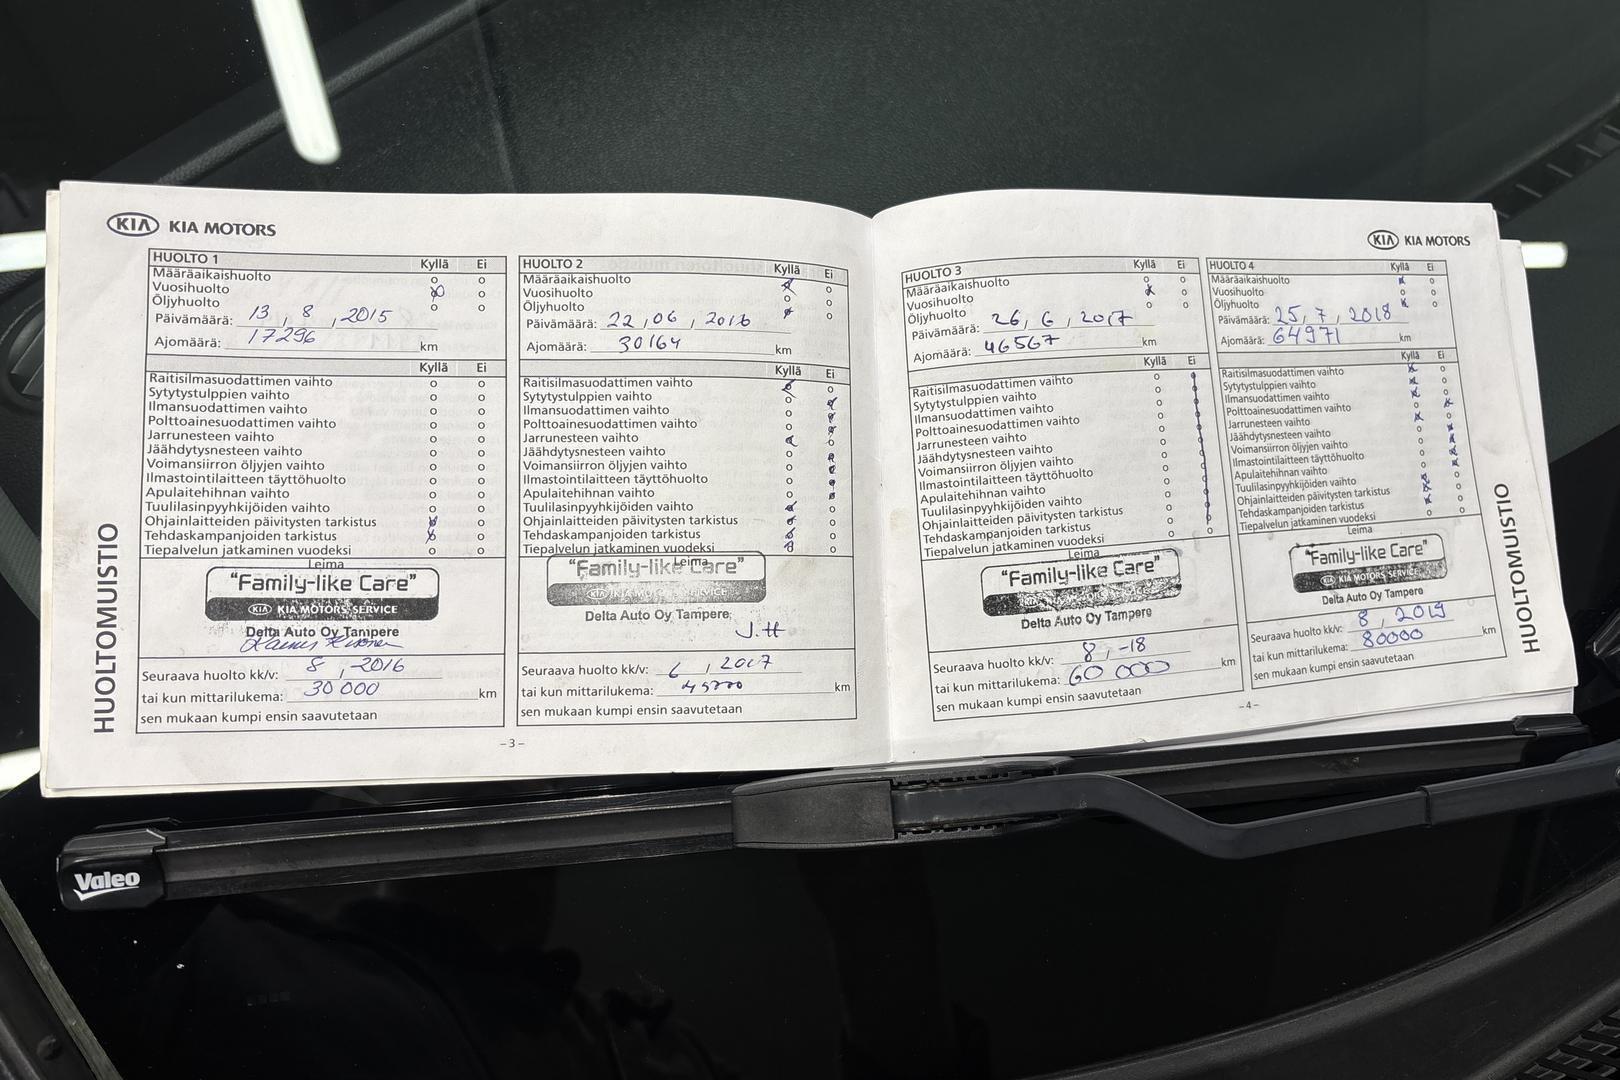 KIA KIA MOTORS
HUOLTOMUISTIO
HUOLTO 1 Kyllä Ei
Määräaikaishuolto
Vuosihuolto
Öljyhuolto
Päivämäärä: 13 , 8 , 2015
Ajomäärä: 17296 km
Kyllä Ei
Raitisilmasuodattimen vaihto
Sytytystulppien vaihto
Ilmansuodattimen vaihto
Polttoainesuodattimen vaihto
Jarrunesteen vaihto
Jäähdytysnesteen vaihto
Voimansiirron öljyjen vaihto
Ilmastointilaitteen täyttöhuolto
Apulaitehihnan vaihto
Tuulilasinpyyhkijöiden vaihto
Ohjainlaitteiden päivitysten tarkistus
Tehdaskampanjoiden tarkistus
Tiepalvelun jatkaminen vuodeksi
Leima
"Family-like Care"
KIA KIA MOTORS SERVICE
Delta Auto Oy Tampere
Seuraava huolto kk/v: 8 , -2016
tai kun mittarilukema: 30 000 km
sen mukaan kumpi ensin saavutetaan
HUOLTO 2 Kyllä Ei
Määräaikaishuolto
Vuosihuolto
Öljyhuolto
Päivämäärä: 22 , 06 , 2016
Ajomäärä: 30164 km
Kyllä Ei
Raitisilmasuodattimen vaihto
Sytytystulppien vaihto
Ilmansuodattimen vaihto
Polttoainesuodattimen vaihto
Jarrunesteen vaihto
Jäähdytysnesteen vaihto
Voimansiirron öljyjen vaihto
Ilmastointilaitteen täyttöhuolto
Apulaitehihnan vaihto
Tuulilasinpyyhkijöiden vaihto
Ohjainlaitteiden päivitysten tarkistus
Tehdaskampanjoiden tarkistus
Tiepalvelun jatkaminen vuodeksi
Leima
"Family-like Care"
KIA KIA MOTORS SERVICE
Delta Auto Oy Tampere
J.H
Seuraava huolto kk/v: 6 , 2017
tai kun mittarilukema: 45000 km
sen mukaan kumpi ensin saavutetaan
- 3 -
KIA KIA MOTORS
HUOLTO 3 Kyllä Ei
Määräaikaishuolto
Vuosihuolto
Öljyhuolto
Päivämäärä: 26 , 6 , 2017
Ajomäärä: 46567 km
Kyllä Ei
Raitisilmasuodattimen vaihto
Sytytystulppien vaihto
Ilmansuodattimen vaihto
Polttoainesuodattimen vaihto
Jarrunesteen vaihto
Jäähdytysnesteen vaihto
Voimansiirron öljyjen vaihto
Ilmastointilaitteen täyttöhuolto
Apulaitehihnan vaihto
Tuulilasinpyyhkijöiden vaihto
Ohjainlaitteiden päivitysten tarkistus
Tehdaskampanjoiden tarkistus
Tiepalvelun jatkaminen vuodeksi
Leima
"Family-like Care"
Delta Auto Oy Tampere
Seuraava huolto kk/v: 8 , -18
tai kun mittarilukema: 60 000 km
sen mukaan kumpi ensin saavutetaan
HUOLTO 4 Kyllä Ei
Määräaikaishuolto
Vuosihuolto
Öljyhuolto
Päivämäärä: 25 , 7 , 2018
Ajomäärä: 64971 km
Kyllä Ei
Raitisilmasuodattimen vaihto
Sytytystulppien vaihto
Ilmansuodattimen vaihto
Polttoainesuodattimen vaihto
Jarrunesteen vaihto
Jäähdytysnesteen vaihto
Voimansiirron öljyjen vaihto
Ilmastointilaitteen täyttöhuolto
Apulaitehihnan vaihto
Tuulilasinpyyhkijöiden vaihto
Ohjainlaitteiden päivitysten tarkistus
Tehdaskampanjoiden tarkistus
Tiepalvelun jatkaminen vuodeksi
Leima
"Family-like Care"
KIA KIA MOTORS SERVICE
Delta Auto Oy Tampere
Seuraava huolto kk/v: 8 , 2019
tai kun mittarilukema: 80000 km
sen mukaan kumpi ensin saavutetaan
- 4 -
HUOLTOMUISTIO
Valeo